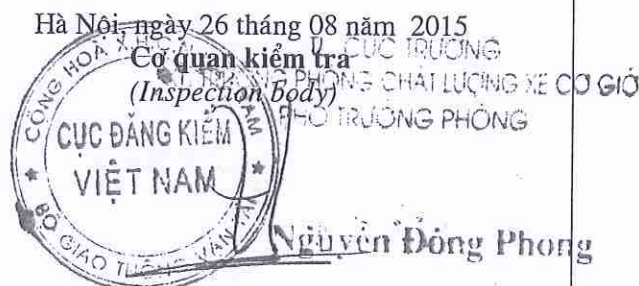 Hà Nội, ngày 26 tháng 08 năm 2015
Cơ quan kiểm tra
(Inspection body)
CỤC TRƯỞNG
PHÒNG CHẤT LƯỢNG XE CƠ GIỚI
PHÓ TRƯỞNG PHÒNG
CỘNG HOÀ X.H NAM
CỤC ĐĂNG KIỂM
VIỆT NAM
BỘ GIAO THÔNG VẬN TẢI
Nguyễn Đông Phong